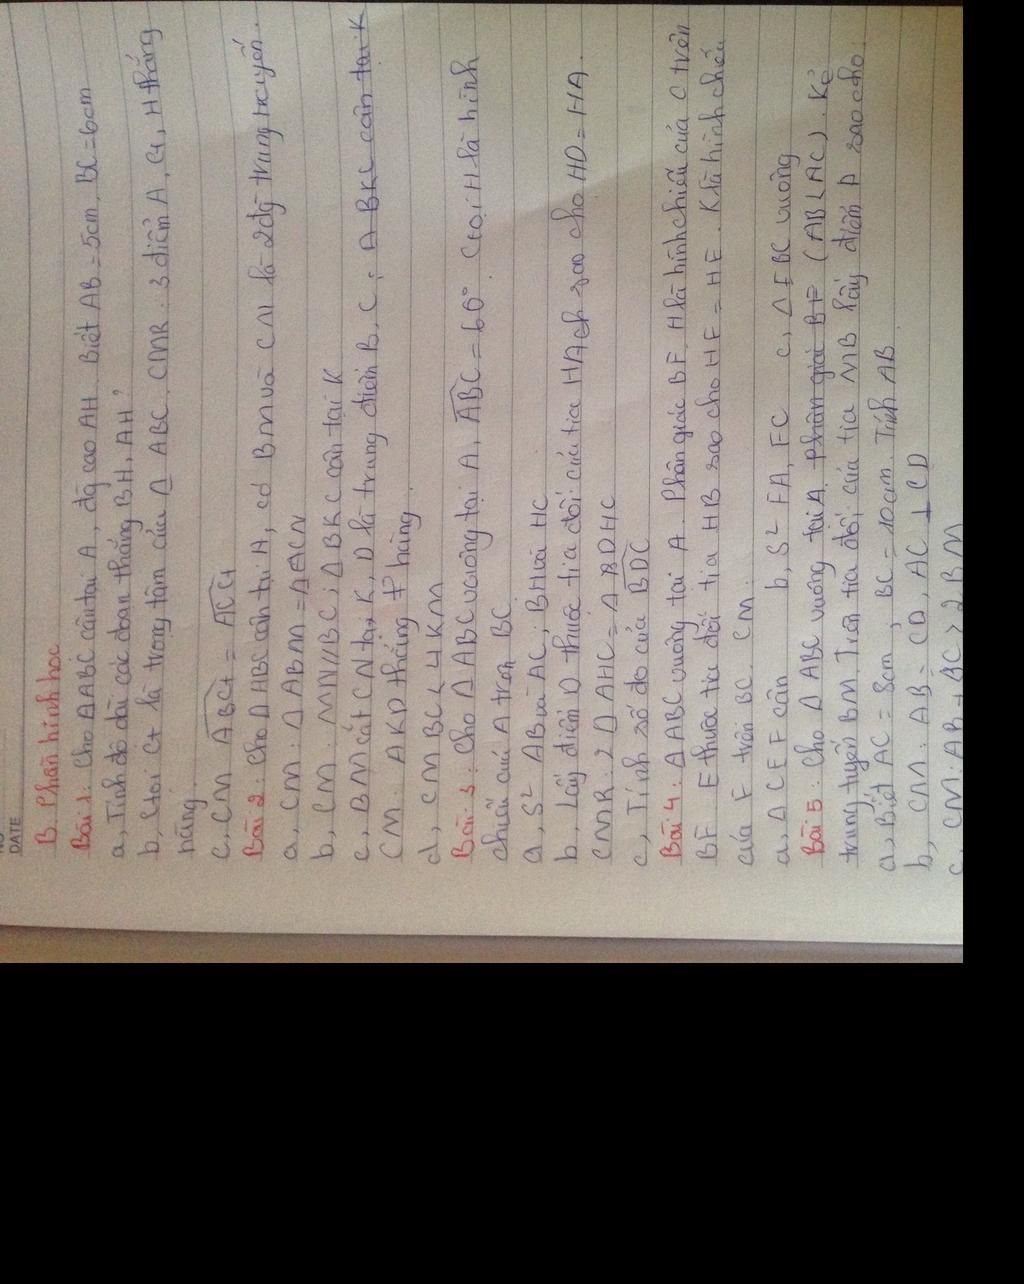 NO
DATE
B. Phần hình học
Bài 1: Cho ΔABC cân tại A, đg cao AH. Biết AB = 5cm, BC = 6cm
a, Tính độ dài các đoạn thẳng BH, AH?
b, Gọi G là trọng tâm của Δ ABC. CMR: 3 điểm A, G, H thẳng
hàng
c, CM ABG = ACG
Bài 2: Cho Δ ABC cân tại A, có BM và CN là 2 đg trung tuyến.
a, CM: Δ ABM = Δ ACN
b, CM: MN//BC; Δ BKC cân tại K
c, BM cắt CN tại K, D là trung điểm B, C; Δ BKC cân tại K
CM: AKD thẳng hàng.
d, CM BC < 4 KM
Bài 3: Cho Δ ABC vuông tại A, ABC = 60°. Gọi H là hình
chiếu của A trên BC
a, S² AB và AC; BH và HC
b, Lấy điểm D thuộc tia đối của tia HA sao cho HD = HA.
CMR: 2 Δ AHC = Δ DHC
c, Tính số đo của BDC
Bài 4: ΔABC vuông tại A. Phân giác BF. H là hình chiếu của C trên
BF. E thuộc tia đối tia HB sao cho HE = HF. K là hình chiếu
của F trên BC. CM:
a, Δ CEF cân b, S² FA, FC c, Δ EBC vuông
Bài 5: Cho Δ ABC vuông tại A phân giác BE (AB < AC). Kẻ
trung tuyến BM. Trên tia đối của tia MB lấy điểm D sao cho
a, Biết AC = 8cm, BC = 10cm. Tính AB
b, CM: AB = CD, AC ⊥ CD
c, CM: AB + BC > 2.BM